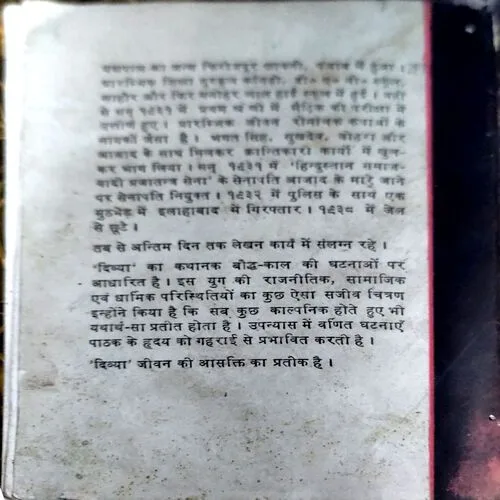 यशपाल का जन्म फिरोजपुर छावनी, पंजाब में हुआ।
प्रारम्भिक शिक्षा गुरुकुल कांगड़ी, डी० ए० वी० स्कूल,
लाहौर और फिर मनोहर लाल हाई स्कूल में हुई। वहीं
से सन् १९२१ में प्रथम श्रेणी में मैट्रिक की परीक्षा में
उत्तीर्ण हुए। प्रारम्भिक जीवन रोमांचक कथाओं के
नायकों जैसा है। भगत सिंह, सुखदेव, बोहरा और
आजाद के साथ मिलकर क्रान्तिकारी कार्यों में खुल-
कर भाग लिया। सन् १९३१ में 'हिन्दुस्तान समाज-
वादी प्रजातन्त्र सेना' के सेनापति आजाद के मारे जाने
पर सेनापति नियुक्त। १९३२ में पुलिस के साथ एक
मुठभेड़ में इलाहाबाद में गिरफ्तार। १९३८ में जेल
से छूटे।
तब से अन्तिम दिन तक लेखन कार्य में संलग्न रहे।
'दिव्या' का कथानक बौद्ध-काल की घटनाओं पर
आधारित है। इस युग की राजनीतिक, सामाजिक
एवं धार्मिक परिस्थितियों का कुछ ऐसा सजीव चित्रण
इन्होंने किया है कि सब कुछ काल्पनिक होते हुए भी
यथार्थ-सा प्रतीत होता है। उपन्यास में वर्णित घटनाएँ
पाठक के हृदय को गहराई से प्रभावित करती है।
'दिव्या' जीवन की आसक्ति का प्रतीक है।